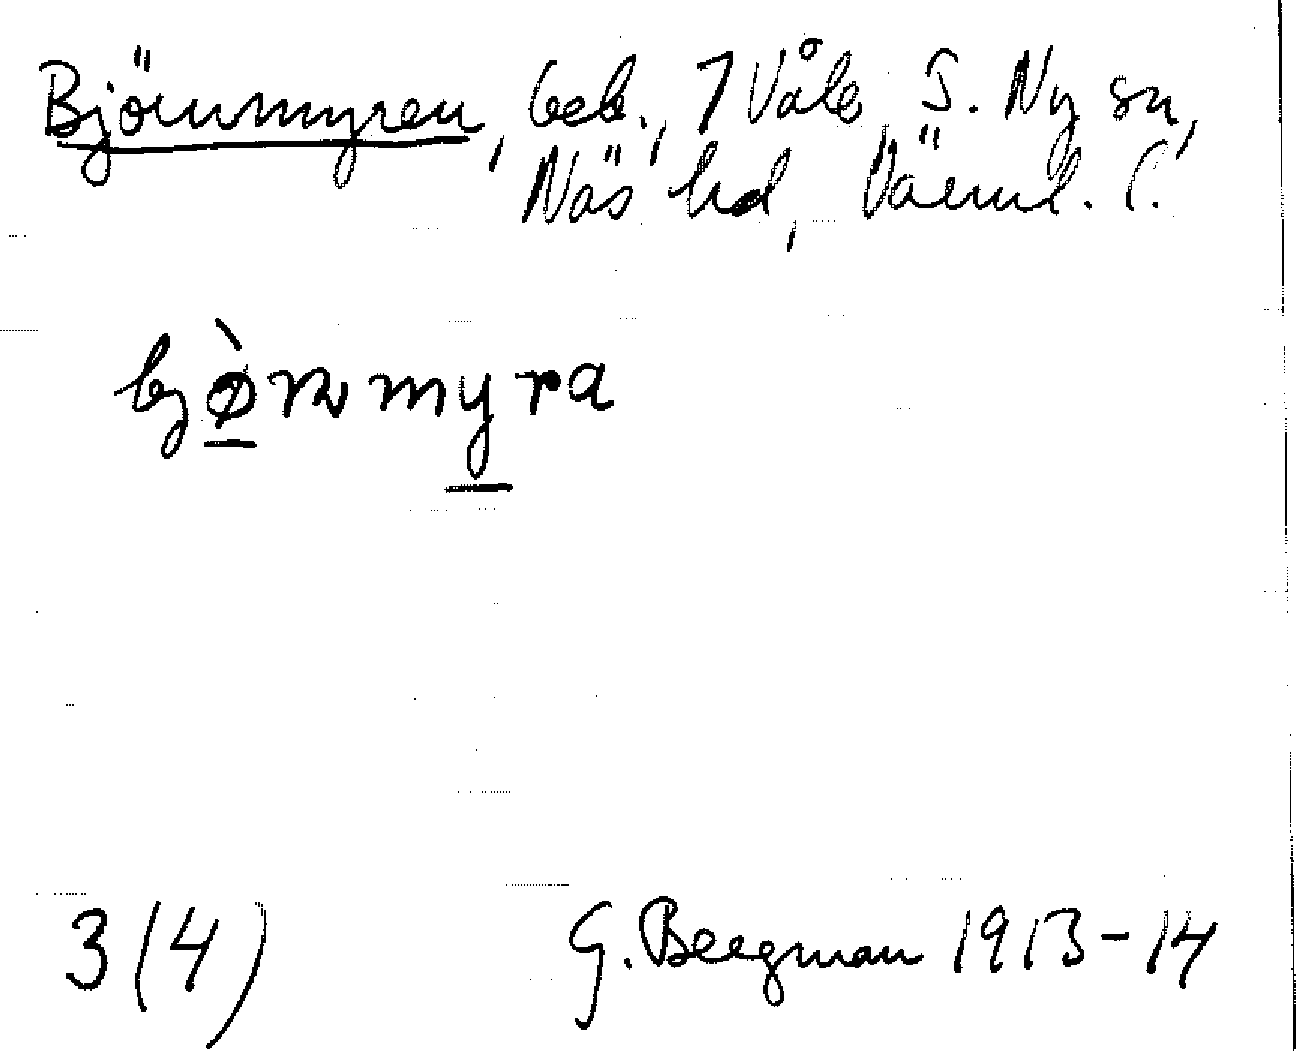 Björnmyren, beb., 7 Våle S. Ny sn,
Näs hd, Värml. l.
bjø̀rnmyra
3(4) G. Bergman 1913-14